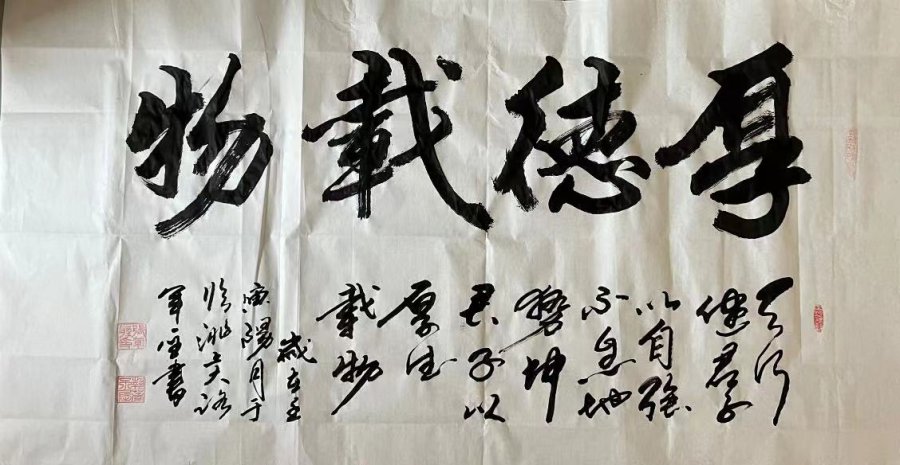 厚德載物
天行
健君子
以自強
不息地
勢坤
君子以
厚德
載物
歲在壬
寅陽月于
臨洮
軍書